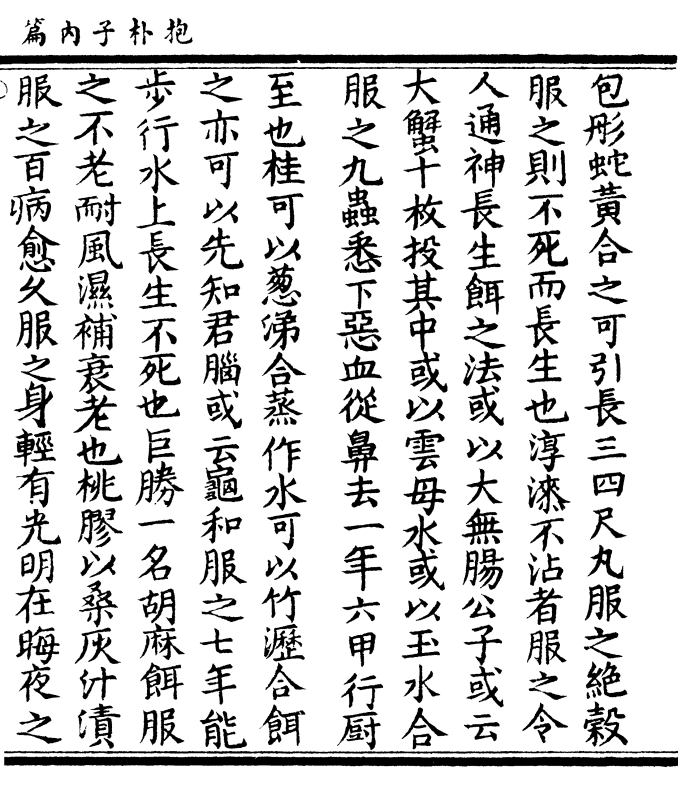 抱朴子內篇
包彤蛇黃合之可引長三四尺丸服之絶穀
服之則不死而長生也淳漆不沾者服之令
人通神長生餌之法或以大無腸公子或云
大蟹十枚投其中或以雲母水或以玉水合
服之九蟲悉下惡血從鼻去一年六甲行厨
至也桂可以葱涕合蒸作水可以竹瀝合餌
之亦可以先知君腦或云龜和服之七年能
步行水上長生不死也巨勝一名胡麻餌服
之不老耐風濕補衰老也桃膠以桑灰汁漬
服之百病愈久服之身輕有光明在晦夜之